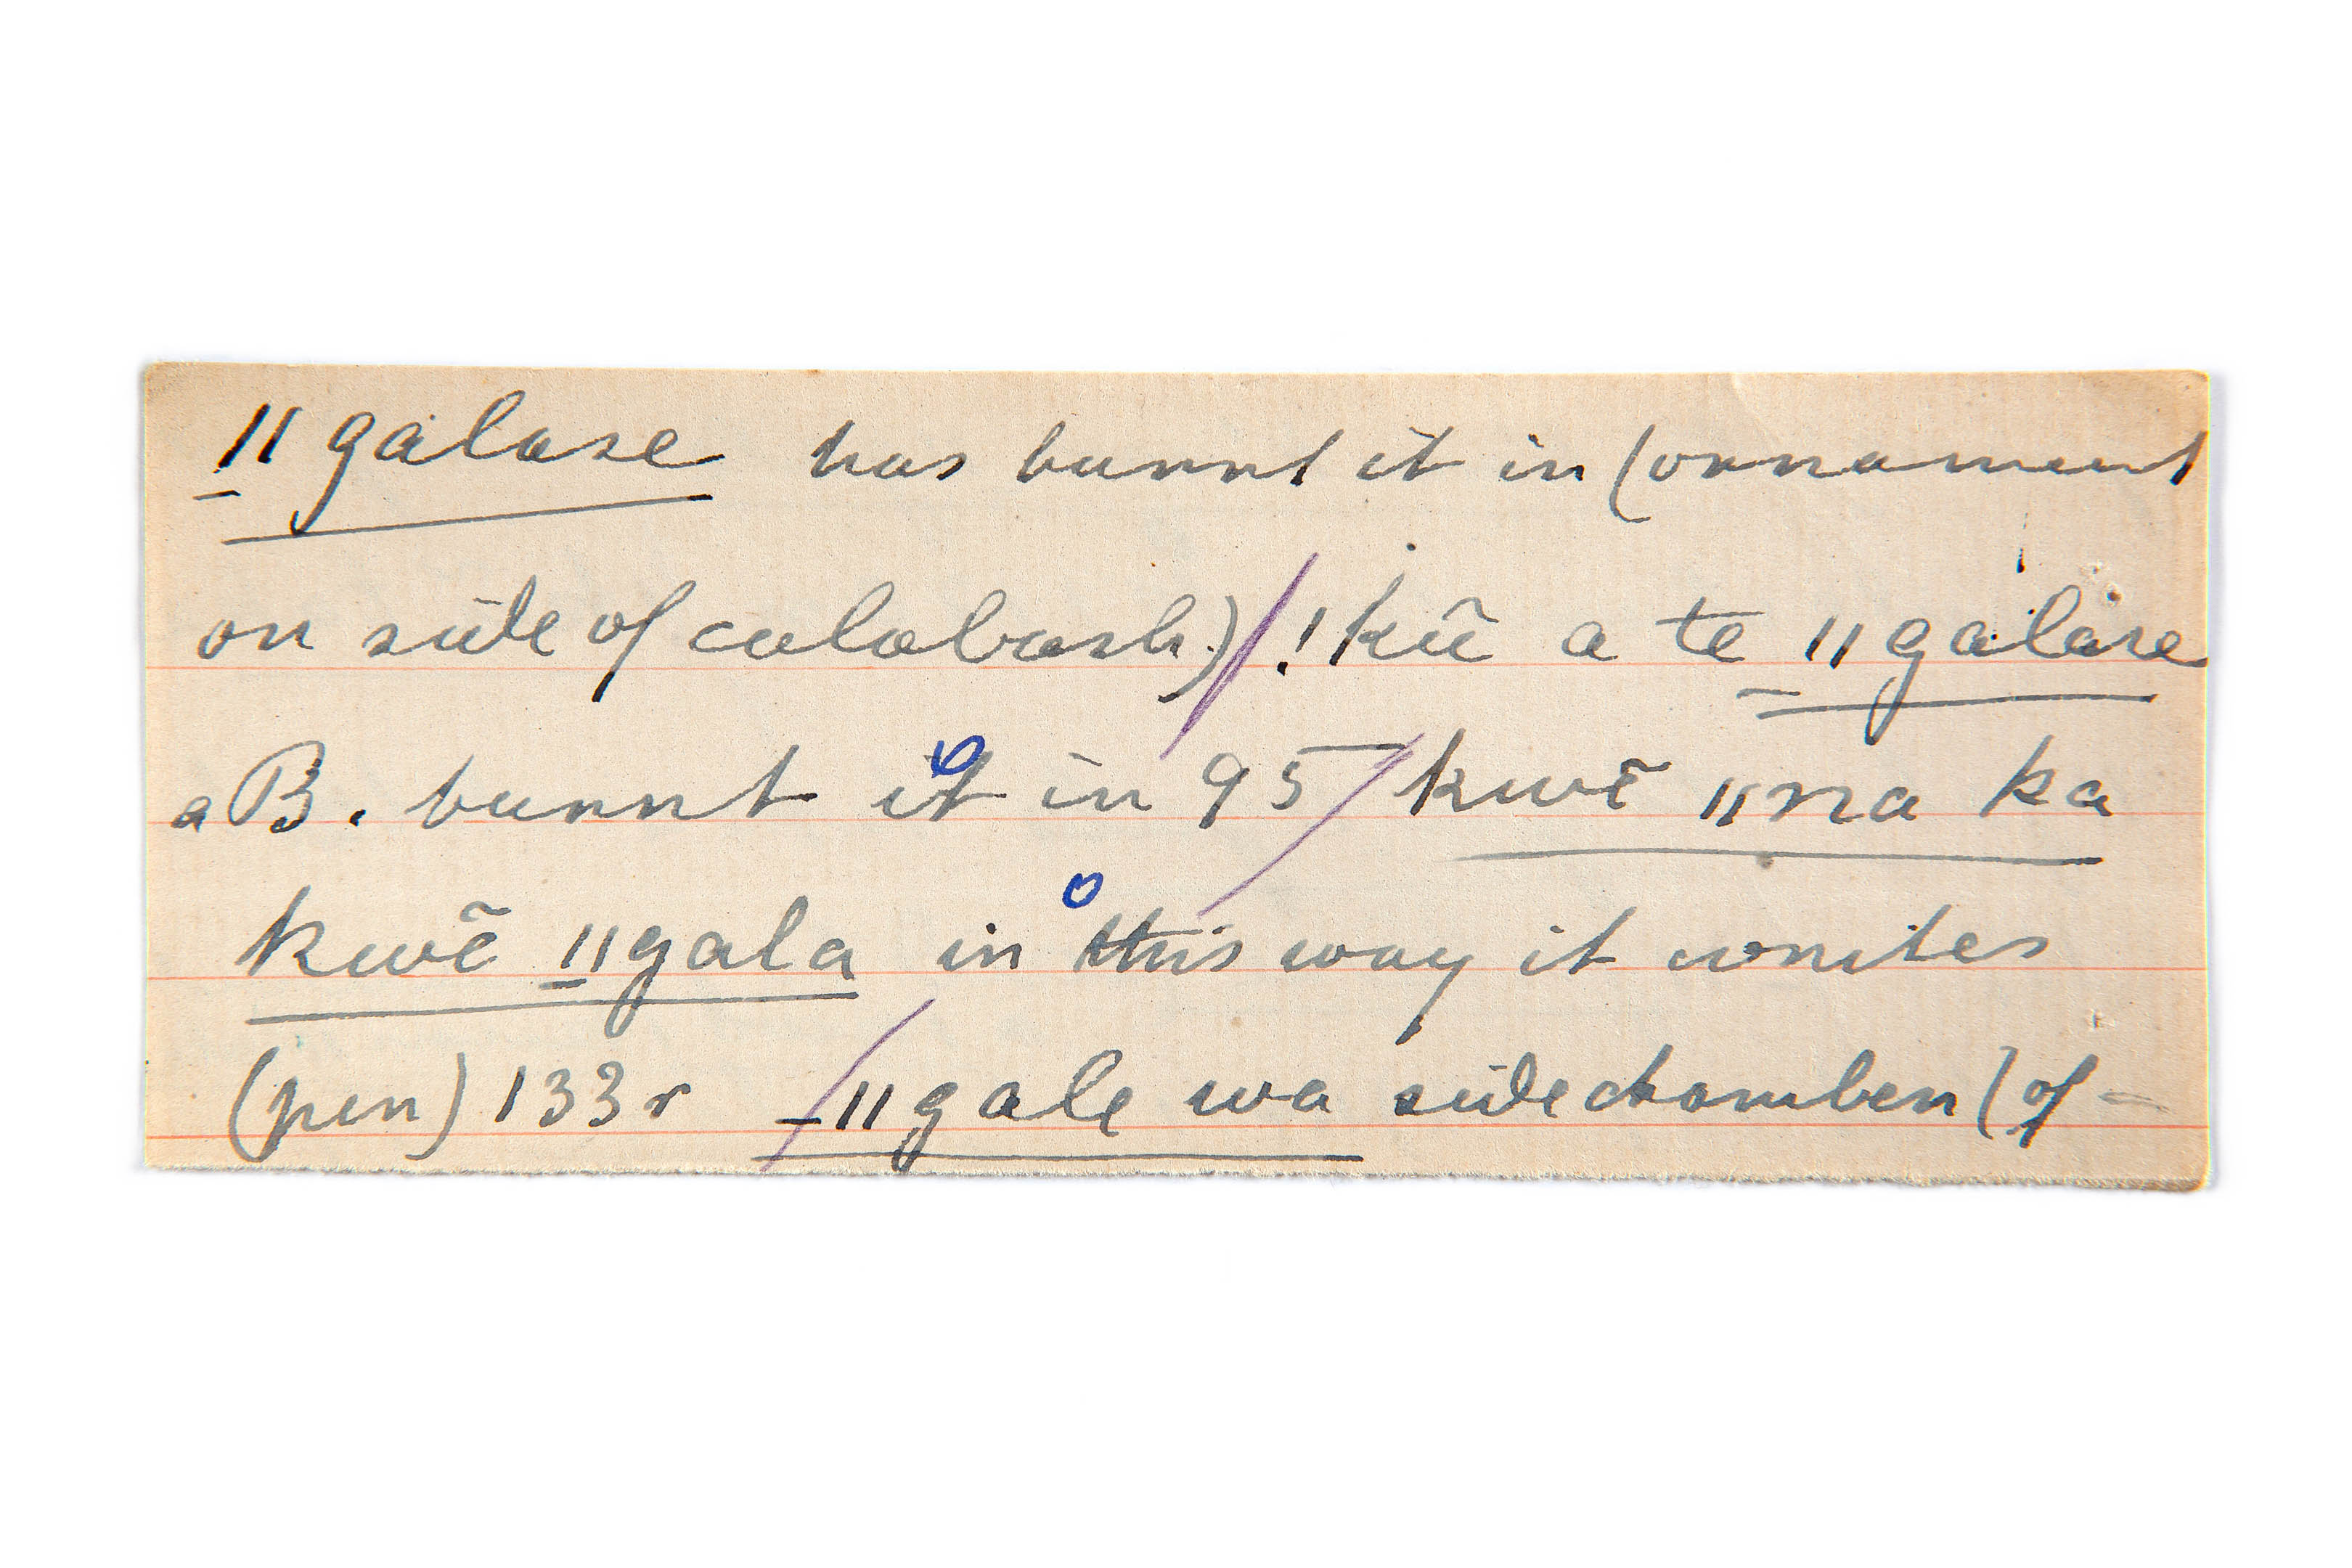 ǁgalase has burnt it in (ornament
on side of calabash) / !kũ a te ǁgalase
a B. burnt it in 95 / kwẽ ǁna ka
kwẽ ǁgala in this way it writes
(pen) 133r / ǁgale wa sidechamber (of -